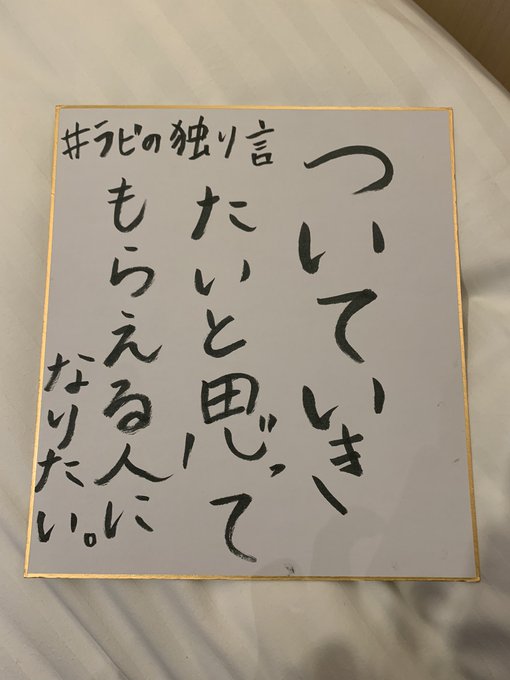 #ラビの独り言
ついていき
たいと思って
もらえる人に
なりたい。